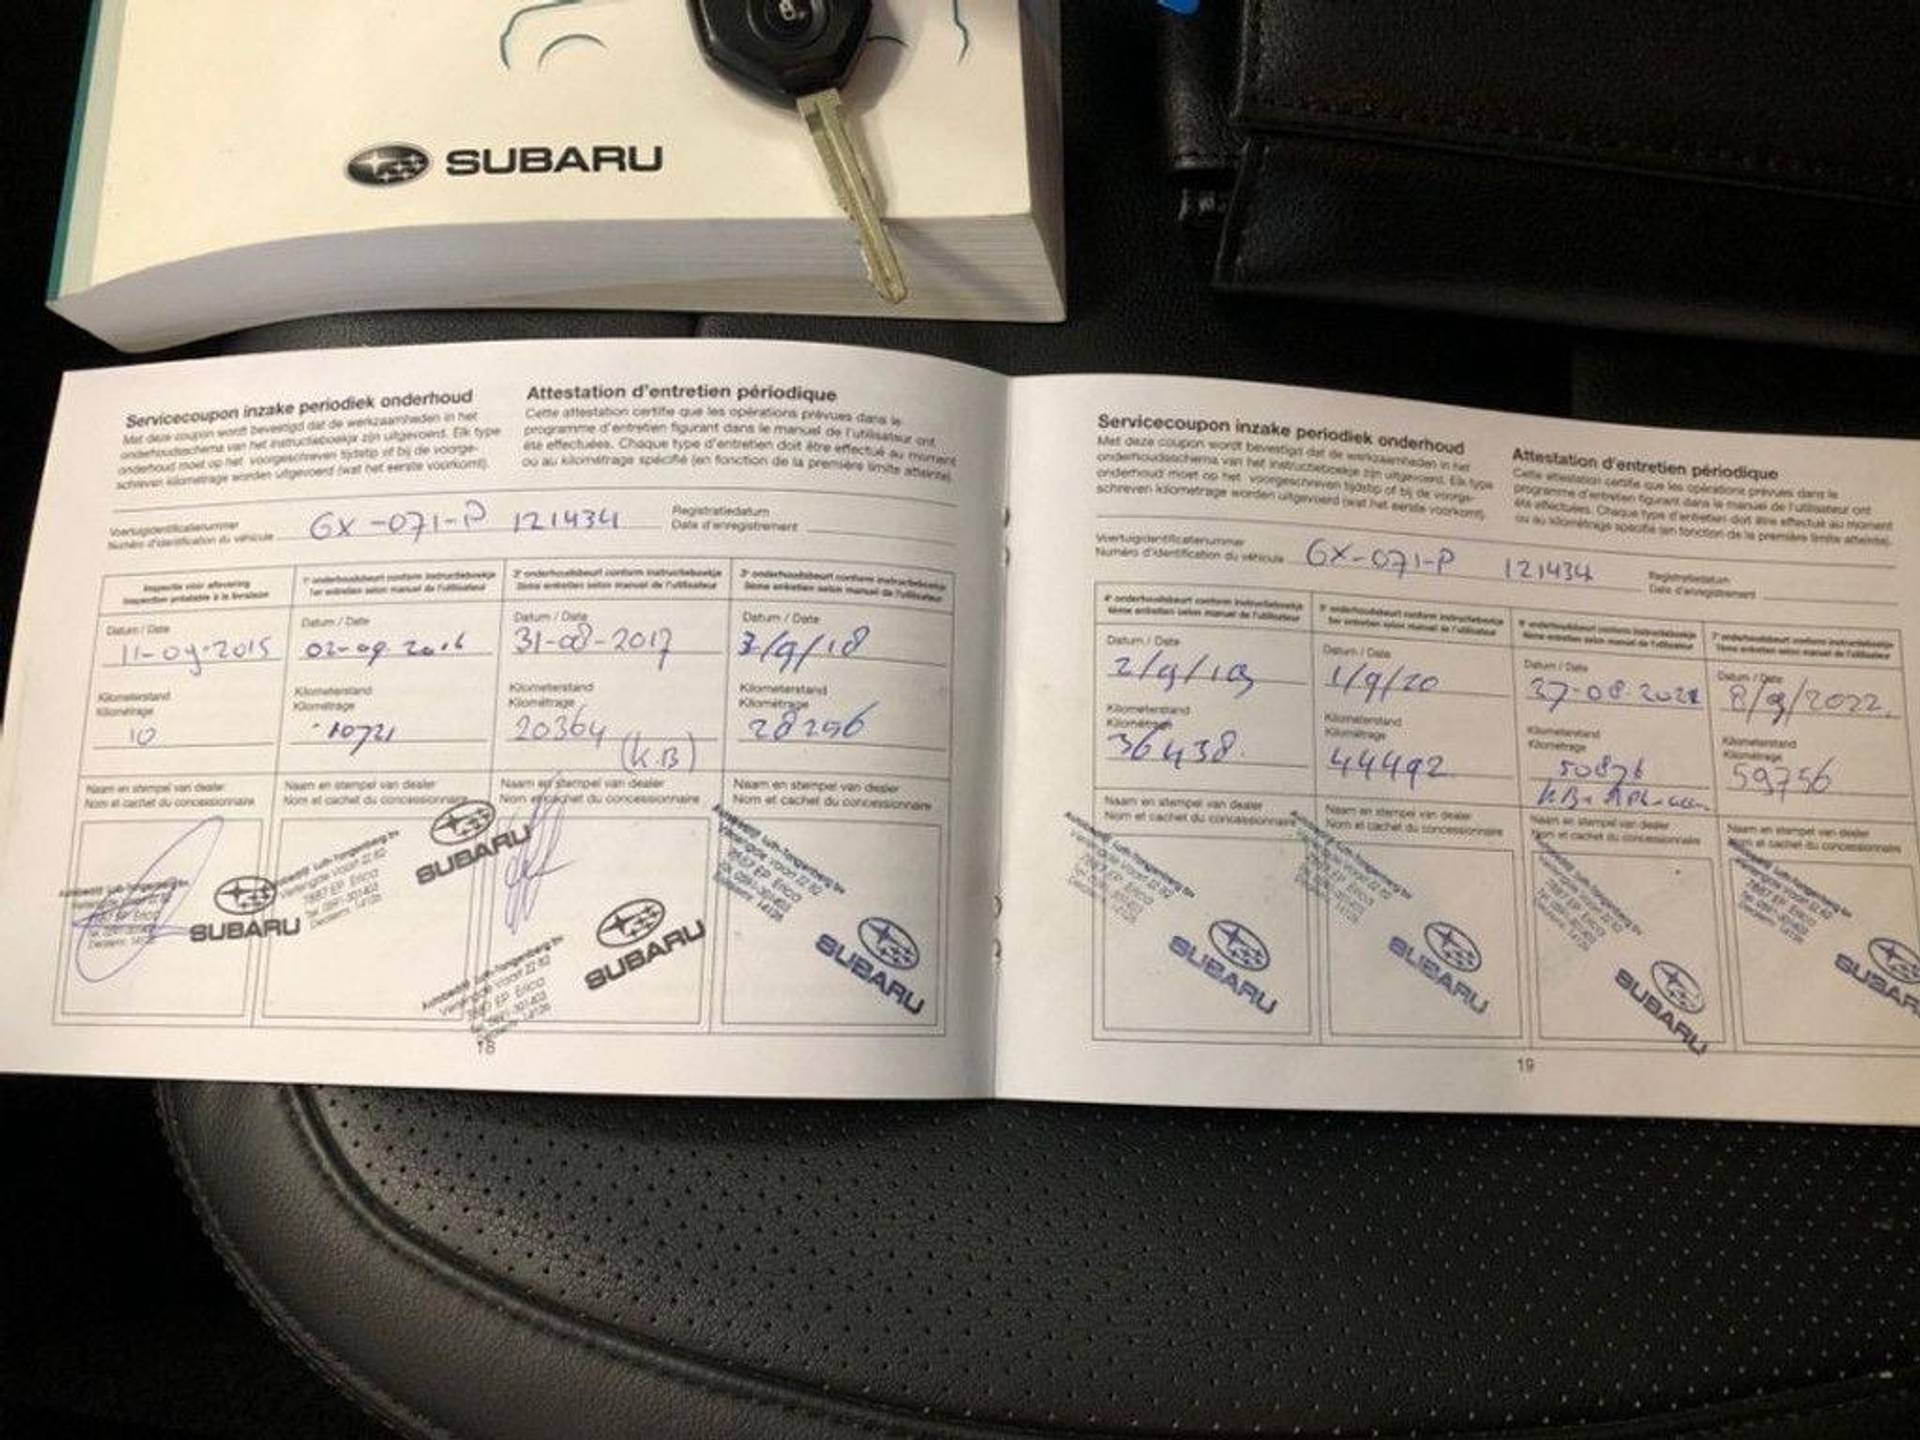 SUBARU
Servicecoupon inzake periodiek onderhoud
Met deze coupon wordt bevestigd dat de werkzaamheden in het
onderhoudsschema van het instructieboekje zijn uitgevoerd. Elk type
onderhoud moet op het voorgeschreven tijdstip of bij de voorge-
schreven kilometrage worden uitgevoerd (wat het eerste voorkomt).
Attestation d'entretien périodique
Cette attestation certifie que les opérations prévues dans le
programme d'entretien figurant dans le manuel de l'utilisateur ont
été effectuées. Chaque type d'entretien doit être effectué au moment
ou au kilométrage spécifié (en fonction de la première limite atteinte).
Voertuigidentificatienummer
Numéro d'identification du véhicule
GX-071-P 121434
Registratiedatum
Date d'enregistrement
Inspectie vóór aflevering
Inspection préalable à la livraison
Datum / Date
11-09-2015
Kilometerstand
Kilométrage
10
Naam en stempel van dealer
Nom et cachet du concessionnaire
SUBARU
1e onderhoudsbeurt conform instructieboekje
1er entretien selon manuel de l'utilisateur
Datum / Date
02-09-2016
Kilometerstand
Kilométrage
10721
Naam en stempel van dealer
Nom et cachet du concessionnaire
7887 EP Erica
SUBARU
2e onderhoudsbeurt conform instructieboekje
2ème entretien selon manuel de l'utilisateur
Datum / Date
31-08-2017
Kilometerstand
Kilométrage
20364
(K.B)
Naam en stempel van dealer
Nom et cachet du concessionnaire
7887 EP Erica
SUBARU
3e onderhoudsbeurt conform instructieboekje
3ème entretien selon manuel de l'utilisateur
Datum / Date
3/9/18
Kilometerstand
Kilométrage
28256
Naam en stempel van dealer
Nom et cachet du concessionnaire
7887 EP Erica
SUBARU
18
Servicecoupon inzake periodiek onderhoud
Met deze coupon wordt bevestigd dat de werkzaamheden in het
onderhoudsschema van het instructieboekje zijn uitgevoerd. Elk type
onderhoud moet op het voorgeschreven tijdstip of bij de voorge-
schreven kilometrage worden uitgevoerd (wat het eerste voorkomt).
Attestation d'entretien périodique
Cette attestation certifie que les opérations prévues dans le
programme d'entretien figurant dans le manuel de l'utilisateur ont
été effectuées. Chaque type d'entretien doit être effectué au moment
ou au kilométrage spécifié (en fonction de la première limite atteinte).
Voertuigidentificatienummer
Numéro d'identification du véhicule
GX-071-P 121434
Registratiedatum
Date d'enregistrement
4e onderhoudsbeurt conform instructieboekje
4ème entretien selon manuel de l'utilisateur
Datum / Date
2/9/19
Kilometerstand
Kilométrage
36438
Naam en stempel van dealer
Nom et cachet du concessionnaire
SUBARU
5e onderhoudsbeurt conform instructieboekje
5er entretien selon manuel de l'utilisateur
Datum / Date
1/9/20
Kilometerstand
Kilométrage
44492
Naam en stempel van dealer
Nom et cachet du concessionnaire
SUBARU
6e onderhoudsbeurt conform instructieboekje
6ème entretien selon manuel de l'utilisateur
Datum / Date
27-08-2021
Kilometerstand
Kilométrage
50876
Naam en stempel van dealer
Nom et cachet du concessionnaire
SUBARU
7e onderhoudsbeurt conform instructieboekje
7ème entretien selon manuel de l'utilisateur
Datum / Date
8/9/2022
Kilometerstand
Kilométrage
59756
Naam en stempel van dealer
Nom et cachet du concessionnaire
SUBARU
19